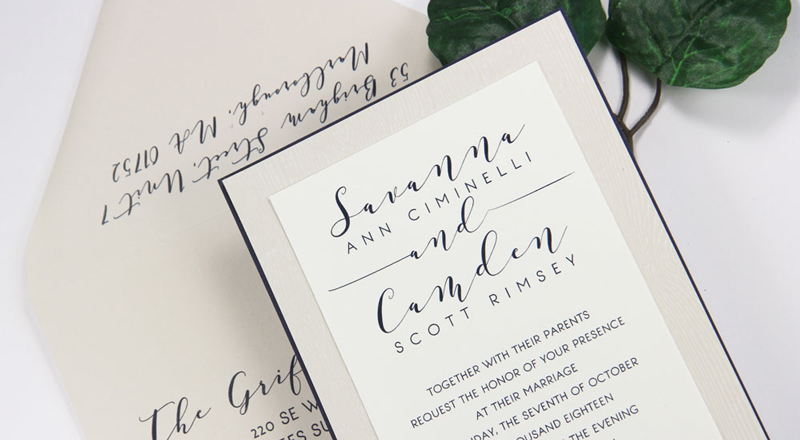 53 Brigham Street, Unit 7
Marlborough, MA 01752
The
220 SE
Savanna
ANN CIMINELLI
and
Camden
SCOTT RIMSEY
TOGETHER WITH THEIR PARENTS
REQUEST THE HONOR OF YOUR PRESENCE
AT THEIR MARRIAGE
THE SEVENTH OF OCTOBER
EIGHTEEN
THE EVENING